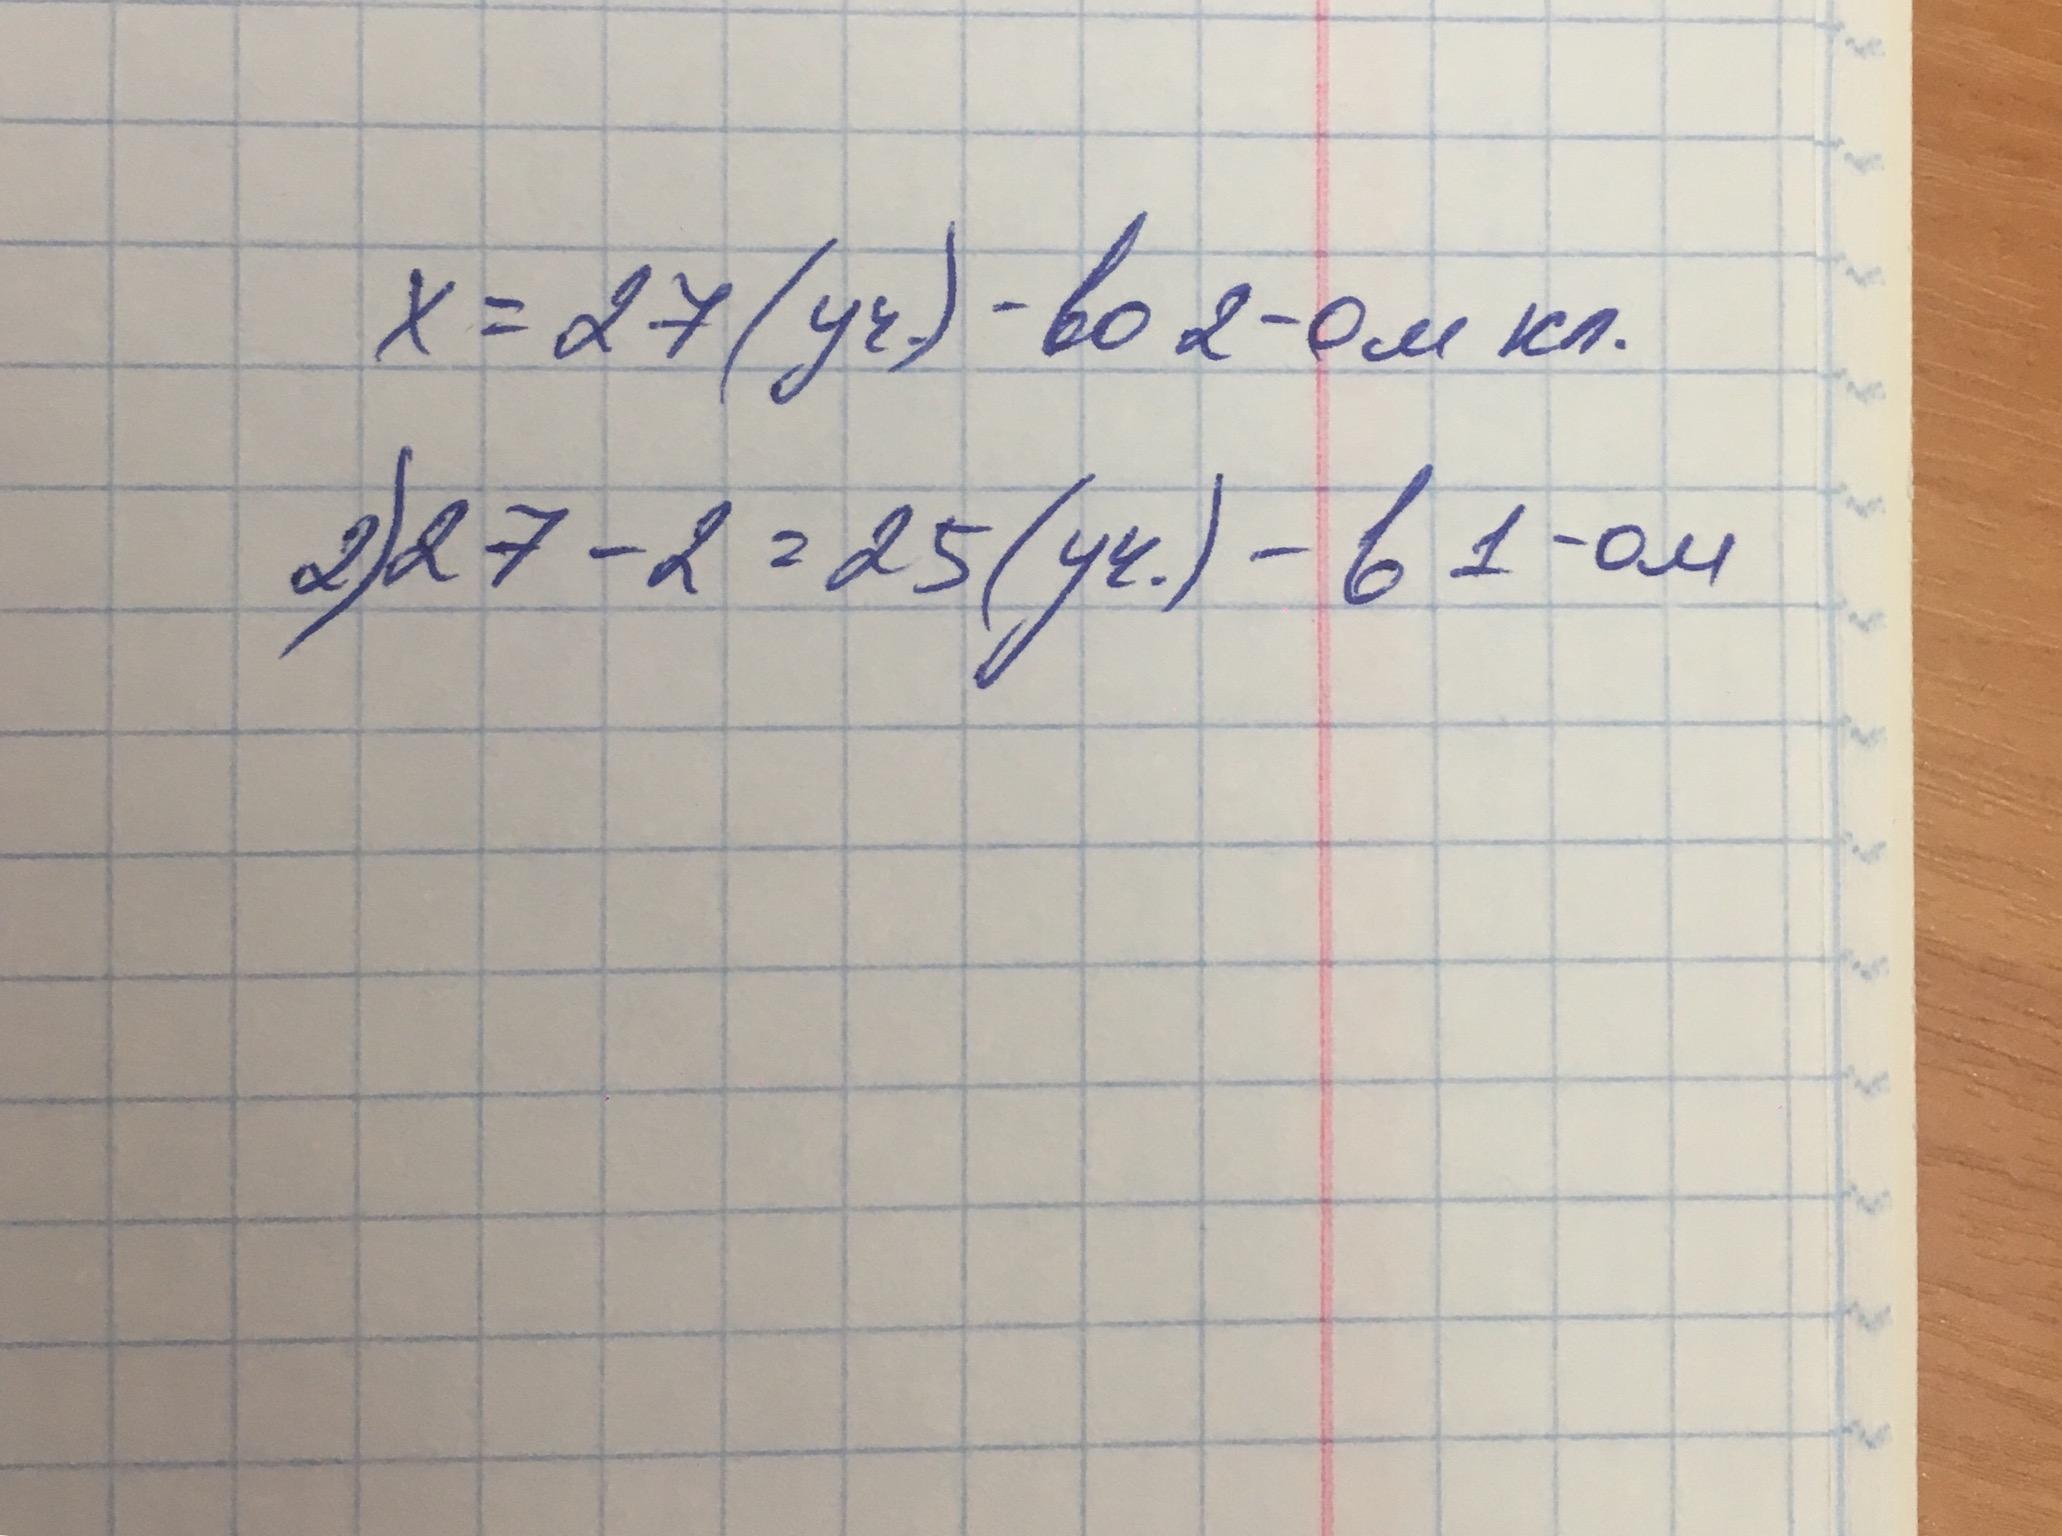 x = 27 (уч.) - во 2-ом кл.
2) 27 - 2 = 25 (уч.) - в 1-ом